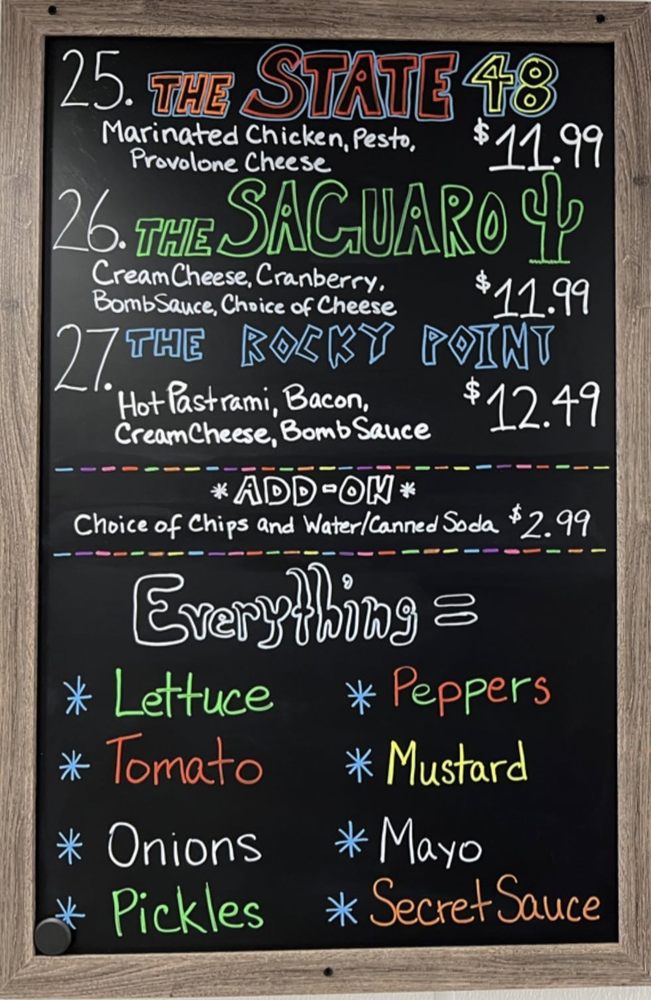 25. THE STATE 48
Marinated Chicken, Pesto, $11.99
Provolone Cheese
26. THE SAGUARO
Cream Cheese, Cranberry,
Bomb Sauce, Choice of Cheese $11.99
27. THE ROCKY POINT
Hot Pastrami, Bacon, $12.49
Cream Cheese, Bomb Sauce
*ADD-ON*
Choice of Chips and Water/Canned Soda $2.99
Everything =
* Lettuce * Peppers
* Tomato * Mustard
* Onions * Mayo
* Pickles * Secret Sauce